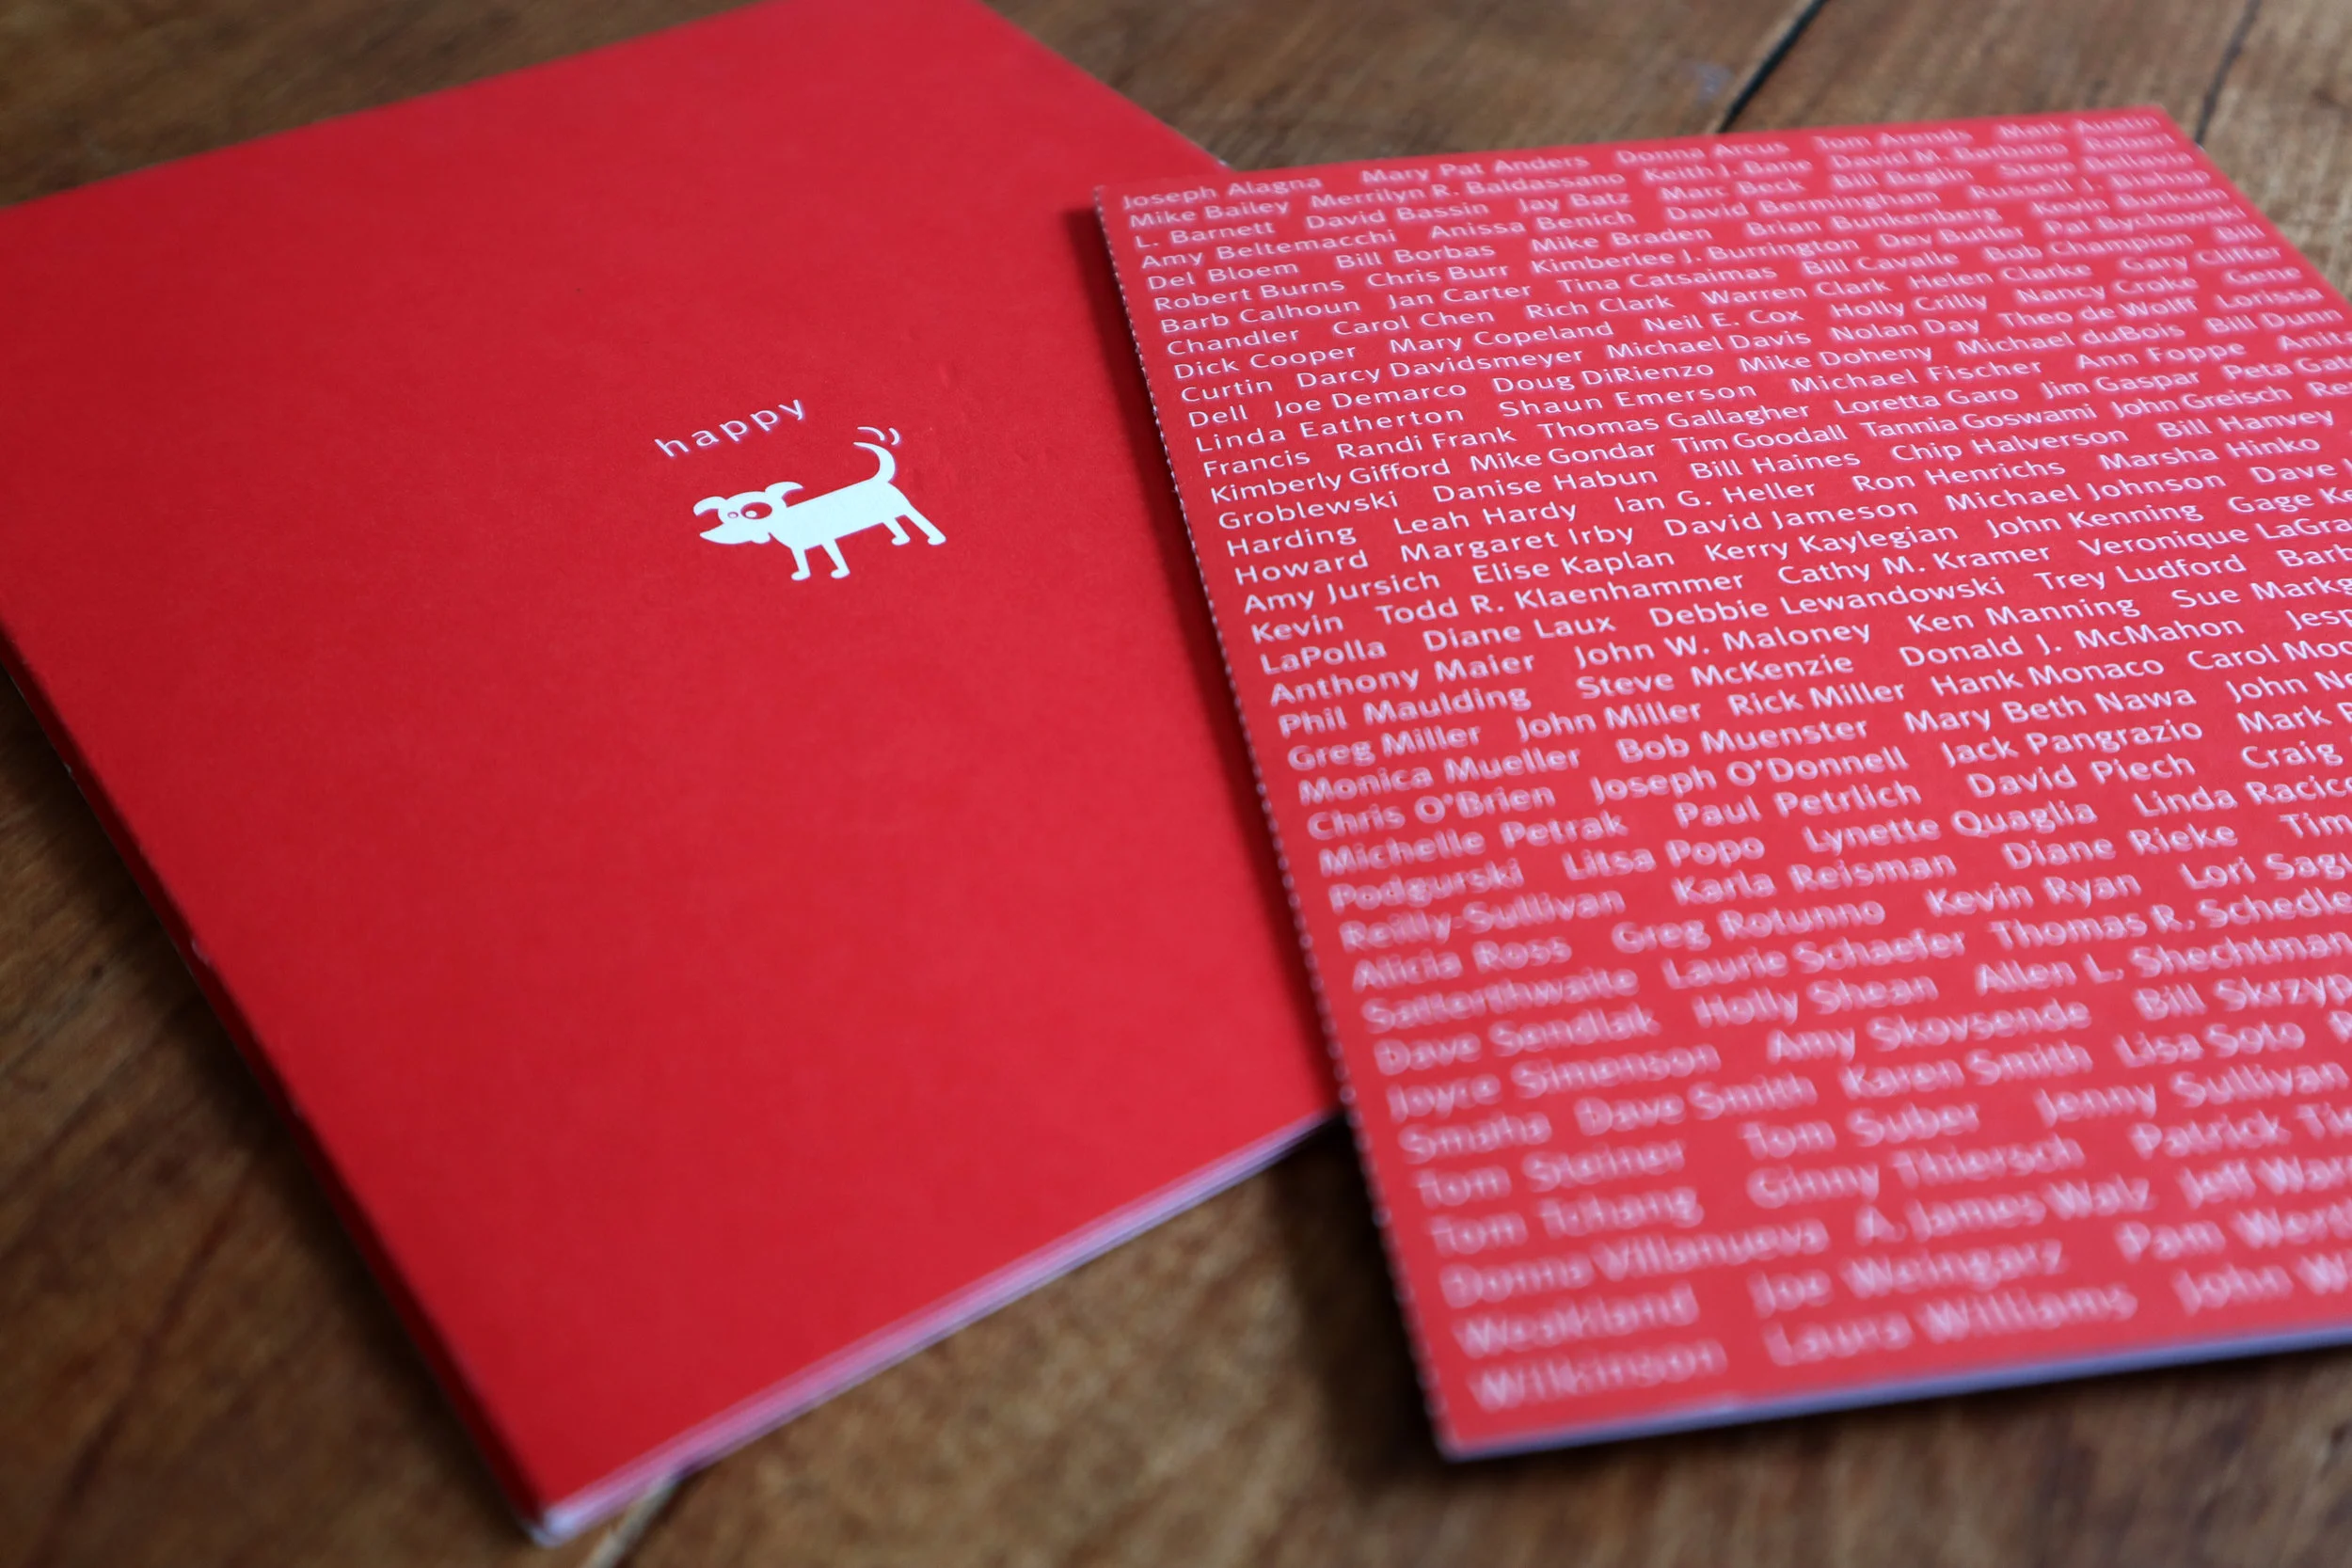 happy
Joseph Alagna Mary Pat Anders Donna Arcus Tom Arends Mark Austin
Mike Bailey Merrilyn R. Baldassano Keith J. Bane David M. Barbara Ashley
L. Barnett David Bassin Jay Batz Marc Beck Bill Beglin Susan Bellavia
Amy Beltemacchi Anissa Benich David Bermingham Russell J. Bishop
Del Bloem Bill Borbas Mike Braden Brian Bunkenburg Kevin Burkum
Robert Burns Chris Burr Kimberlee J. Burrington Dev Butler Pat Bychowski
Barb Calhoun Jan Carter Tina Catsaimas Bill Cavalle Bob Champion Bill
Chandler Carol Chen Rich Clark Warren Clark Helen Clarke Gary Cliffe
Dick Cooper Mary Copeland Neil E. Cox Holly Crilly Nancy Croke Gene
Curtin Darcy Davidsmeyer Michael Davis Nolan Day Theo de Wolff Lorissa
Dell Joe Demarco Doug DiRienzo Mike Doheny Michael duBois Bill Dunn
Linda Eatherton Shaun Emerson Michael Fischer Ann Foppe
Francis Randi Frank Thomas Gallagher Loretta Garo Jim Gaspar Peta
Kimberly Gifford Mike Gondar Tim Goodall Tannia Goswami John Greisch
Groblewski Danise Habun Bill Haines Chip Halverson Bill Hanvey
Harding Leah Hardy Ian G. Heller Ron Henrichs Marsha Hinko
Howard Margaret Irby David Jameson Michael Johnson Dave
Amy Jursich Elise Kaplan Kerry Kaylegian John Kenning Gage
Kevin Todd R. Klaenhammer Cathy M. Kramer Veronique
LaPolla Diane Laux Debbie Lewandowski Trey Ludford Barb
Anthony Maier John W. Maloney Ken Manning Sue
Phil Maulding Steve McKenzie Donald J. McMahon
Greg Miller John Miller Rick Miller Hank Monaco Carol
Monica Mueller Bob Muenster Mary Beth Nawa John
Chris O'Brien Joseph O'Donnell Jack Pangrazio Mark
Michelle Petrak Paul Petrlich David Piech Craig
Podgurski Litsa Popo Lynette Quaglia Linda
Reilly-Sullivan Karla Reisman Diane Rieke Tim
Alicia Ross Greg Rotunno Kevin Ryan Lori
Satterthwaite Laurie Schaefer Thomas R.
Dave Sendlak Holly Shean Allen L. Shechtman
Joyce Simenson Amy Skovsende Bill
Smaha Dave Smith Karen Smith Lisa Soto
Tom Steiner Tom Suber Jenny Sullivan
Tom Ginny Thiersch Patrick
Donna Villanueva A. James Walz Jeff
Weakland Joe Weingarz Pam
Wilkinson Laura Williams John